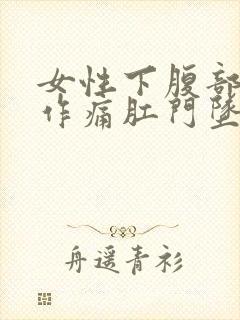 女性下腹部
作痛肛門墜
舟遥青衫